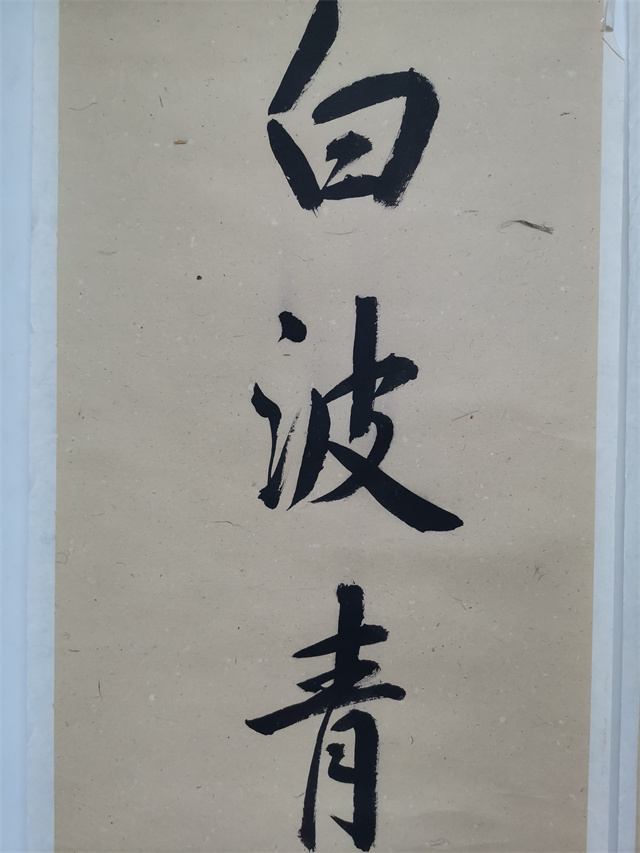 白波青